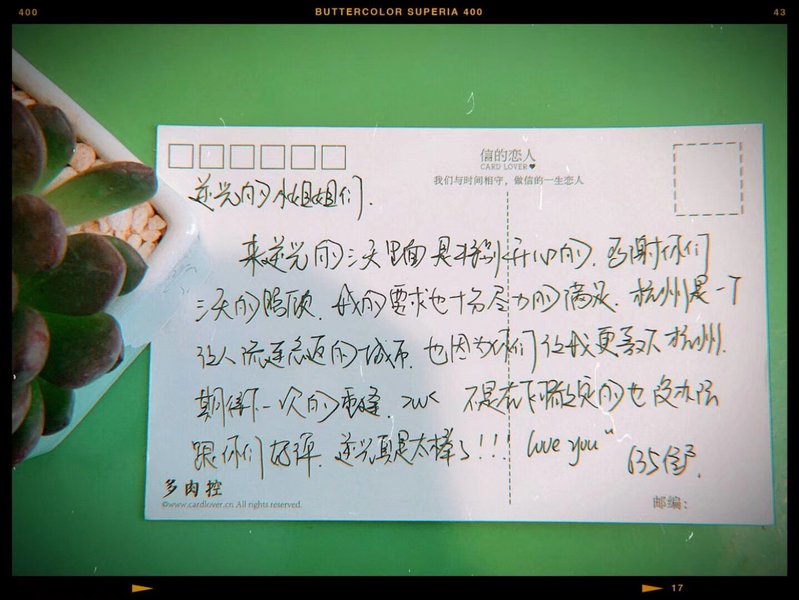 400
BUTTERCOLOR SUPERIA 400
43
信的恋人
CARD LOVER
我们与时间相守，做信的一生恋人
逆光的小姐姐们.
来逆光的三天里面是特别开心的. 感谢你们
三天的照顾. 我的要求也十分尽力的满足. 杭州是一个
让人流连忘返的城市. 也因为你们让我更喜欢杭州.
期待下一次的重逢. 不是在下 的也没办法
跟你们好评. 逆光真是太棒了!!! love you
多肉控
©www.cardlover.cn All rights reserved.
邮编：
17